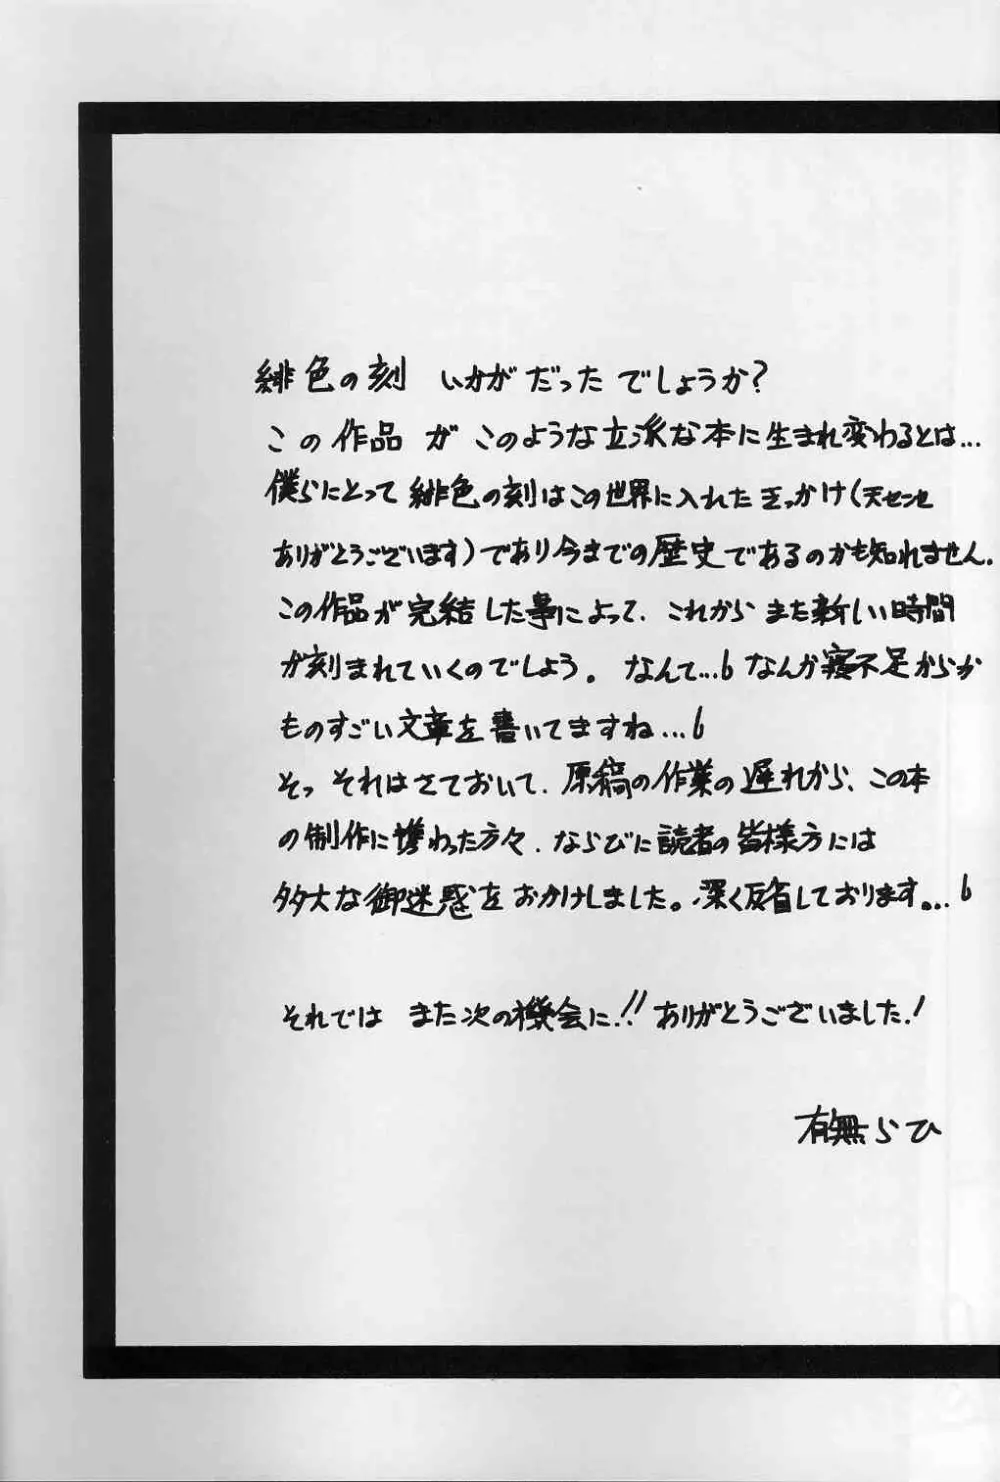 緋色の刻 いかがだったでしょうか?
この作品が このような立派な本に生まれ変わるとは…
僕らにとって緋色の刻はこの世界に入れたきっかけ(天センセ
ありがとうございます)であり今までの歴史であるのかも知れません.
この作品が完結した事によって、これから また新しい時間
が刻まれていくのでしょう。なんて…6 なんか寝不足からか
ものすごい文章を書いてますね…6
そっ それはさておいて、原稿の作業の遅れから、この本
の制作に携わった方々、ならびに読者の皆様方には
多大な御迷惑をおかけしました。深く反省しております。…6
それでは また次の機会に!!ありがとうございました!
有無らひ